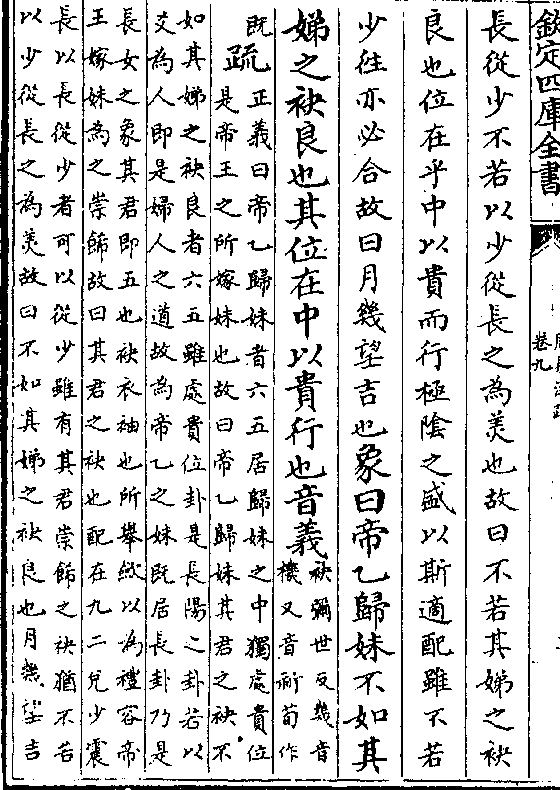 欽定四庫全書
卷九
長從少不若以少從長之為美也故曰不若其娣之袂
良也位在乎中以貴而行極陰之盛以斯適配雖不若
少往亦必合故曰月幾望吉也象曰帝乙歸妹不如其
娣之袂良也其位在中以貴行也音義袂彌世反幾音
機又音祈荀作
既疏正義曰帝乙歸妹者六五居歸妹之中獨處貴位
是帝王之所嫁妹也故曰帝乙歸妹其君之袂不
如其娣之袂良者六五雖處貴位卦是長陽之卦若以
爻為人即是婦人之道故為帝乙之妹既居長卦乃是
長女之象其君即五也袂衣袖也所舉斂以為禮容帝
王嫁妹為之崇飾故曰其君之袂也配在九二兌少震
長以長從少者可以從少雖有其君崇飾之袂猶不若
以少從長之為美故曰不如其娣之袂良也月幾望吉